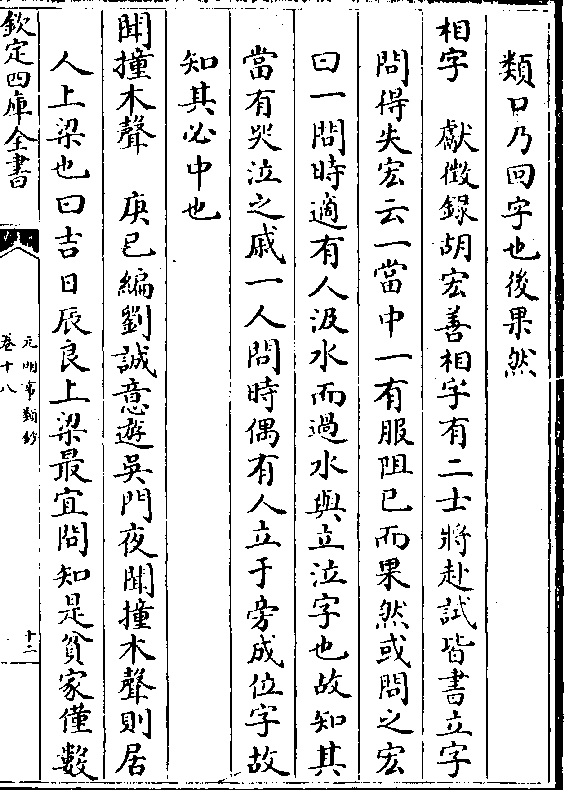 類口乃回字也後果然
相字　獻徵錄胡宏善相字有二士將赴試皆書立字
問得失宏云一當中一有服阻已而果然或問之宏
曰一問時適有人汲水而過水與立泣字也故知其
當有哭泣之戚一人問時偶有人立于旁成位字故
知其必中也
聞撞木聲　庚巳編劉誠意遊吳門夜聞撞木聲則居
人上梁也曰吉日辰良上梁最宜問知是貧家僅數
欽定四庫全書
元明事類鈔
卷十八
十二